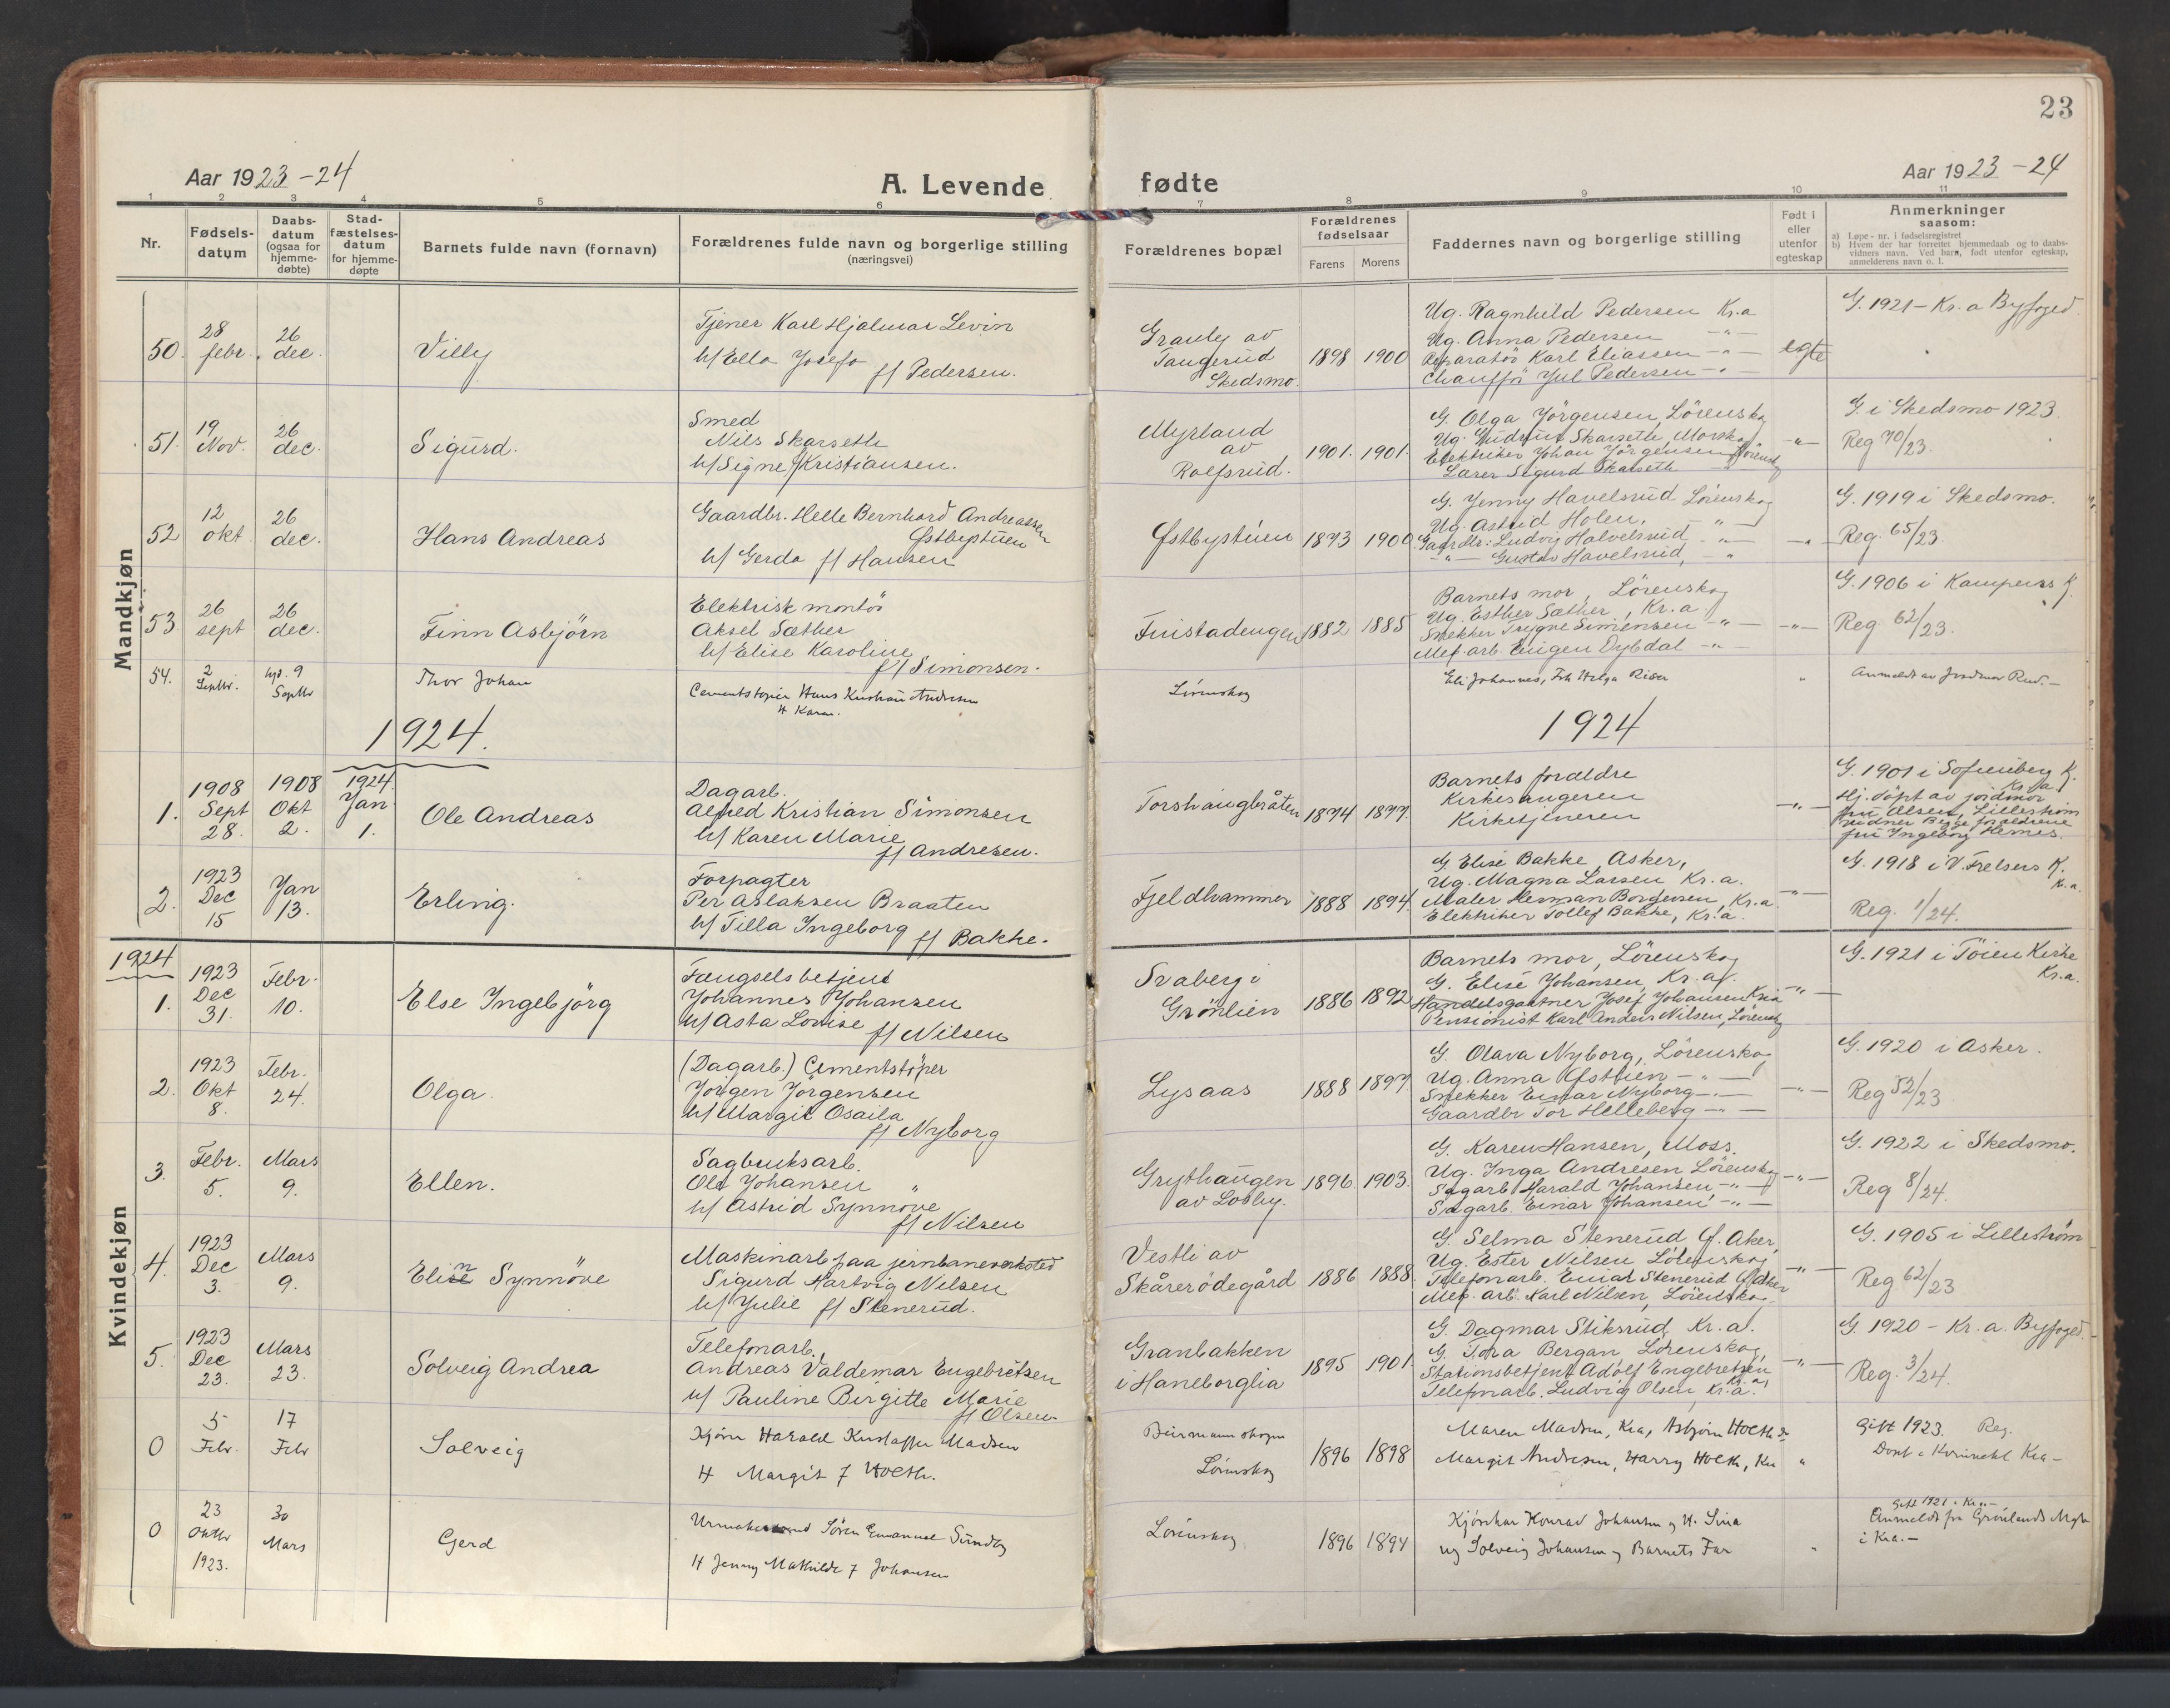 23
Aar 1923-24
A. Levende
fødte
Aar 1923-24
1 2 3 4 5 6 7 8 9 10 11
Nr.
Fødsels-datum
Daabs-datum (ogsaa for hjemme-døbte)
Stad-fæstelses-datum for hjemme-døpte
Barnets fulde navn (fornavn)
Forældrenes fulde navn og borgerlige stilling
(næringsvei)
Forældrenes bopæl
Forældrenes fødselsaar
Farens
Morens
Faddernes navn og borgerlige stilling
Født i eller utenfor egteskap
Anmerkninger
saasom:
a) Løpe-nr. i fødselsregistret
b) Hvem der har forrettet hjemmedaab og to daabs-
vidners navn. Ved barn, født utenfor egteskap,
anmelderens navn o. l.
Mandkjøn
50. 28 febr. 26 dec. Villy
Tjener Karl Hjalmar Levin
h/ Ella Josefa
f/ Pedersen.
Tangerud
Skedsmo.
1898 1900
Ug. Ragnhild Pedersen Kr.a
Ug. Anna Pedersen -"-
Reparatör Karl Eliassen -"-
Chaufför Jul Pedersen -"-
egte
G. 1921 - Kr.a Byfoged.
51. 19 Nov. 26 dec. Sigurd.
Smed
Nils Skarseth
h/ Signe f/ Kristiansen.
Myrland
av
Rolfsrud.
1901. 1901.
G. Olga Jörgensen, Lörenskog
Ug. Gudrun Skarseth,
Elektriker Johan Jörgensen, Lörenskog
Lærer Sigurd Skarseth -"-
-"-
G. i Skedsmo 1923.
Reg 70/23.
52 12 okt. 26 dec. Hans Andreas
Gaardbr. Helle Bernhard Andreassen
Østbystuen
h/ Gerda f/ Hansen
Østbystuen
1893 1900
G. Jenny Havelsrud Lörenskog
Ug. Astrid Holen, -"-
Gaardbr. Ludvig Halvelsrud, -"-
-"- Gustav Havelsrud, -"-
G. 1919 i Skedsmo.
Reg. 65/23.
53 26 sept 26 dec. Finn Asbjörn
Elektrisk montör
Aksel Sæther
h/ Elise Karoline
f/ Simonsen.
Finstadengen
1882 1885
Barnets mor, Lörenskog
Ug. Esther Sæther, Kr.a.
Snekker Trygve Simensen -"-
Mek. arb. Eugen Dybdal -"-
-"-
G. 1906 i Kampens K.
Reg. 62/23.
54. 2 Septbr. hjd. 9 Septbr Thor Johan
Cementstøper Hans Kristian Andersen
H Karen.
Lørenskog
Eli Johannes, Frk Helga Riser
"
Anmeldt av Jordmor Rud.-
1924.
1924
1. 1908 Sept 28. 1908 Okt 2. 1924. Jan 1. Ole Andreas
Dagarb.
Alfred Kristian Simonsen
h/ Karen Marie
f/ Andresen.
Torshaugbråten
1874 1877.
Barnets forældre
Kirkesangeren
Kirketjeneren
-"-
G. 1901 i Sofienberg K.
Kr.a
Hj. döpt av jordmor
fru Olsen, Lilleström
vidner Begge forældrene
fru Ingeborg Hernes.
2. 1923 Dec 15 Jan 13. Erling.
Forpagter
Per Aslaksen Braaten
h/ Tilla Ingeborg
f/ Bakke.
Fjeldhammer
1888 1894.
G. Elise Bakke, Asker,
Ug. Magna Larsen Kr.a.
Maler Herman Bordersen, Kr.a.
Elektriker Tollef Bakke, Kr.a.
-"-
G. 1918 i V. Frelsers K.
Kr.a.
Reg. 1/24.
Kvindekjøn
1924
1. 1923 Dec 31. Febr. 10. Else Ingebjörg
Fængselsbetjent
Johannes Johansen
h/ Asta Lovise
f/ Nilsen
Svaberg i
Grönlien
1886 1892
Barnets mor, Lörenskog
G. Elise Johansen, Kr.a.
Handelsgartner Josef Johansen Kria
Pensionist Karl Anders Nilsen, Lörenskog
-"-
G. 1921 i Töien Kirke
Kr.a.
2. 1923 Okt 8. Febr. 24. Olga.
(Dagarb.) Cementstöper
Jörgen Jörgensen
h/ Margit Osaila
f/ Nyborg
Lysaas
1888 1897.
G. Olava Nyborg, Lörenskog
Ug. Anna Østlien -"-
Snekker Einar Nyborg -"-
Gaardbr Tor Helleberg -"-
-"-
G. 1920 i Asker.
Reg 52/23
3. Febr. 5. Mars 9. Ellen.
Sagbruksarb.
Ole Johansen
h/ Astrid Synnöve
f/ Nilsen
Grythaugen
av Losby.
1896 1903.
G. Karen Hansen, Moss.
Ug. Inga Andresen Lörenskog
Sagarb. Harald Johansen -"-
Sagarb. Einar Johansen -"-
-"-
G. 1922 i Skedsmo.
Reg 8/24.
4. 1923 Dec 3. Mars 9. Elin Synnöve
Maskinarb paa jernbaneverksted
Sigurd Hartvig Nilsen
h/ Julie f/ Stenerud.
Vestli av
Skårerödegård
1886 1888.
G. Selma Stenerud Ø. Aker,
Ug. Ester Nilsen Lörenskog
Telefonarb. Einar Stenerud Ø. Aker
Mek. arb. Karl Nilsen, Lörenskog
-"-
G. 1905 i Lilleström
Reg 62/23
5. 1923 Dec 23. Mars 23. Solveig Andrea
Telefonarb.
Andreas Valdemar Engebretsen
h/ Pauline Birgitte Marie
f/ Olsen
Granbakken
i Haneborglia
1895 1901.
G. Dagmar Stiksrud, Kr.a.
G. Tora Bergan Lörenskog,
Stationsbetjent Adolf Engebretsen
Kr.a,
Telefonarb. Ludvig Olsen, Kr.a.
-"-
G. 1920 - Kr.a. Byfoged.
Reg. 3/24.
0 5 Febr. 17 Febr Solveig
Kjører Harald Kristoffer Madsen
H Margit f Hoeth.
Lørenskog
1896 1898
Maren Madsen, Kra, Asbjørn Hoeth do
Margit Andresen, Harry Hoeth, Kra
"
Gift 1923. Reg.
Døpt i Kvinnekl Kra-
0 23 Oktbr 1923. 30 Mars Gerd
Søren Emanuel Sundby
H Jenny Mathilde f Johansen
Lørenskog
1896 1894
Konrad Johansen og H. Lina
ug Solveig Johansen og Barnets Far
"
Gift 1921 i Kra.-
Anmeldt fra Grønlands Mgk
i Kra.-